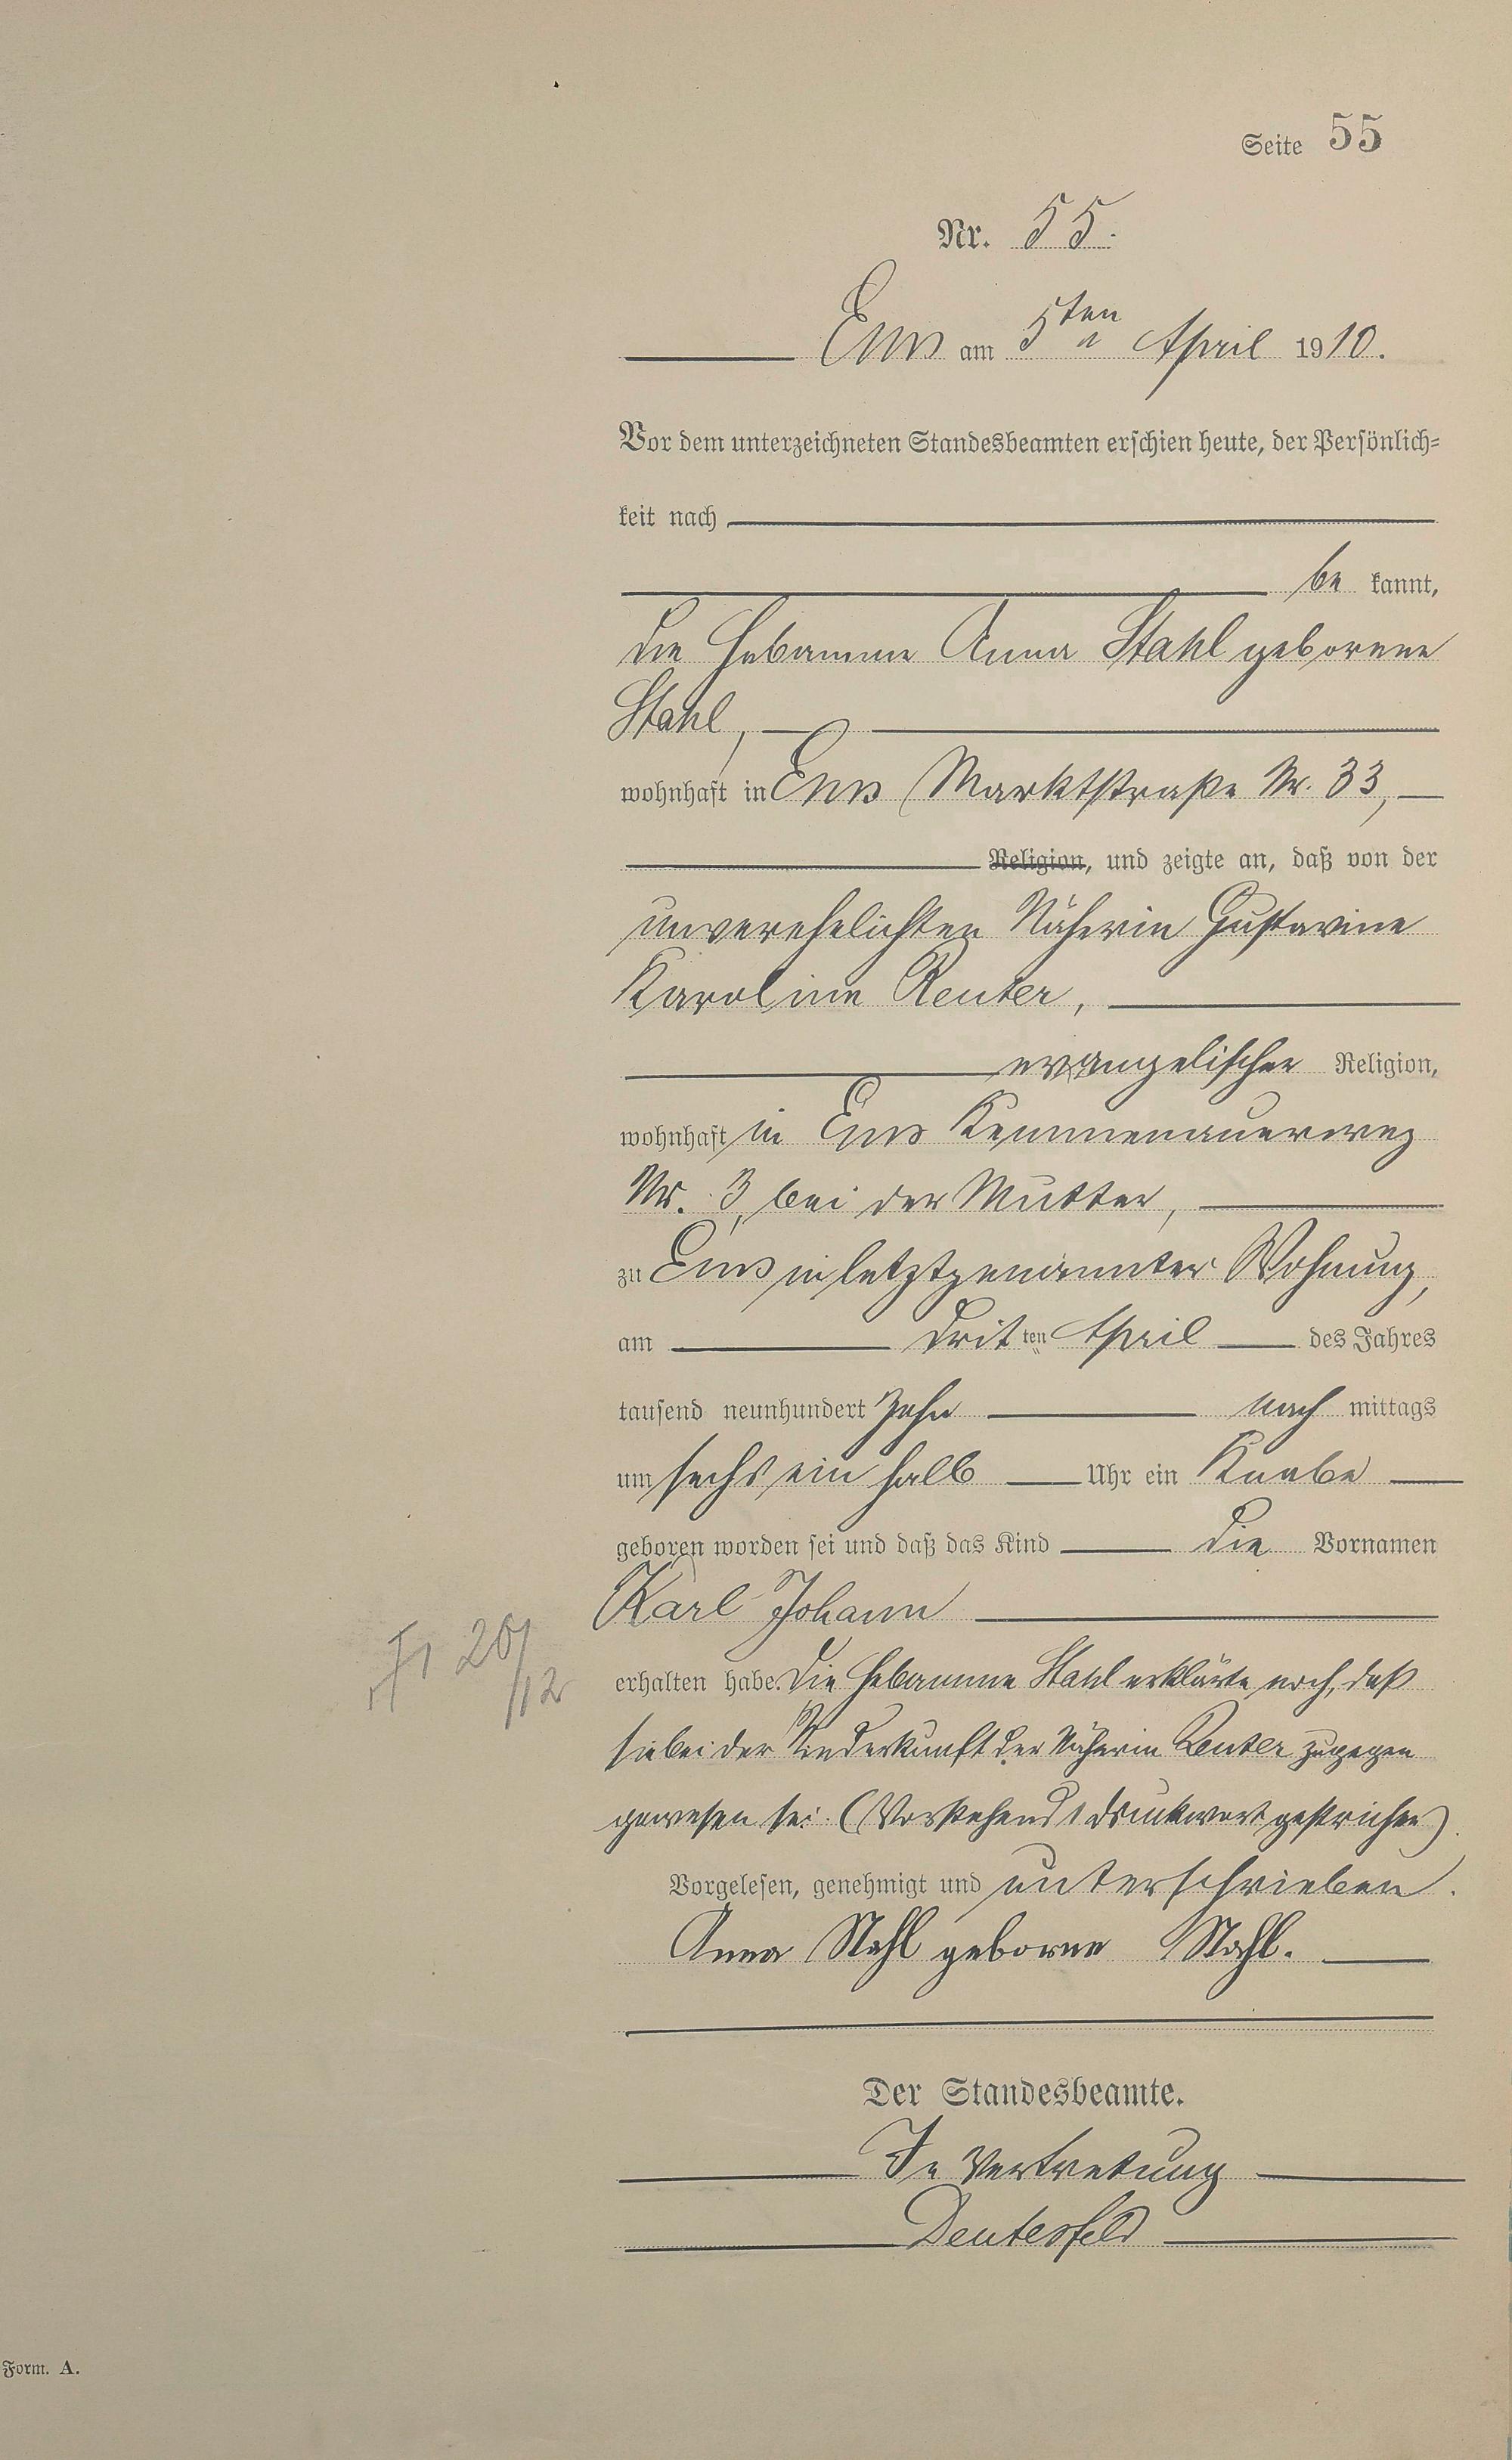 Seite 55
Nr. 55.
Ems am 5ten April 1910.
Vor dem unterzeichneten Standesbeamten erschien heute, der Persönlich-
keit nach
be kannt,
die Hebamme Anna Stahl geborene
Stahl,
wohnhaft in Ems Marktstraße Nr. 33,
Religion, und zeigte an, daß von der
unverehelichten Näherin Gustavine
Karoline Reuter,
evangelischer Religion,
wohnhaft in Ems Kemmenauerweg
Nr. 3, bei der Mutter,
zu Ems in letztgenannter Wohnung,
am dritten April des Jahres
tausend neunhundert zehn nach mittags
um sechs ein halb Uhr ein Knabe
geboren worden sei und daß das Kind die Vornamen
Karl Johann
erhalten habe. Die Hebamme Stahl erklärte noch, daß
sie bei der Niederkunft der Näherin Reuter zugegen
gewesen sei. (Vorstehend 1 Druckwort gestrichen).
Vorgelesen, genehmigt und unterschrieben.
Anna Stahl geborne Stahl.
Der Standesbeamte.
In Vertretung
Deutesfeld
20/12
Form. A.